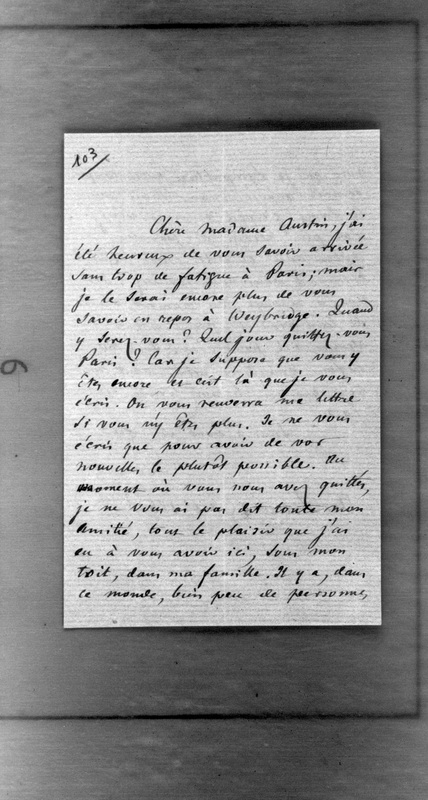 103
Chère Madame Austin, j'ai
été heureux de vous savoir arrivée
sans trop de fatigue à Paris; mais
je le serai encore plus de vous
savoir en repos à Weybridge. Quand
y serez-vous? Quel jour quittez-vous
Paris? Car je suppose que vous y
êtes encore et c'est là que je vous
écris. On vous renverra ma lettre
si vous n'y êtes plus. Je ne vous
écris que pour avoir de vos
nouvelles le plutôt possible. Au
moment où vous nous avez quittés,
je ne vous ai pas dit toute mon
amitié, tout le plaisir que j'ai
eu à vous avoir ici, sous mon
toit, dans ma famille. Il y a, dans
ce monde, bien peu de personnes